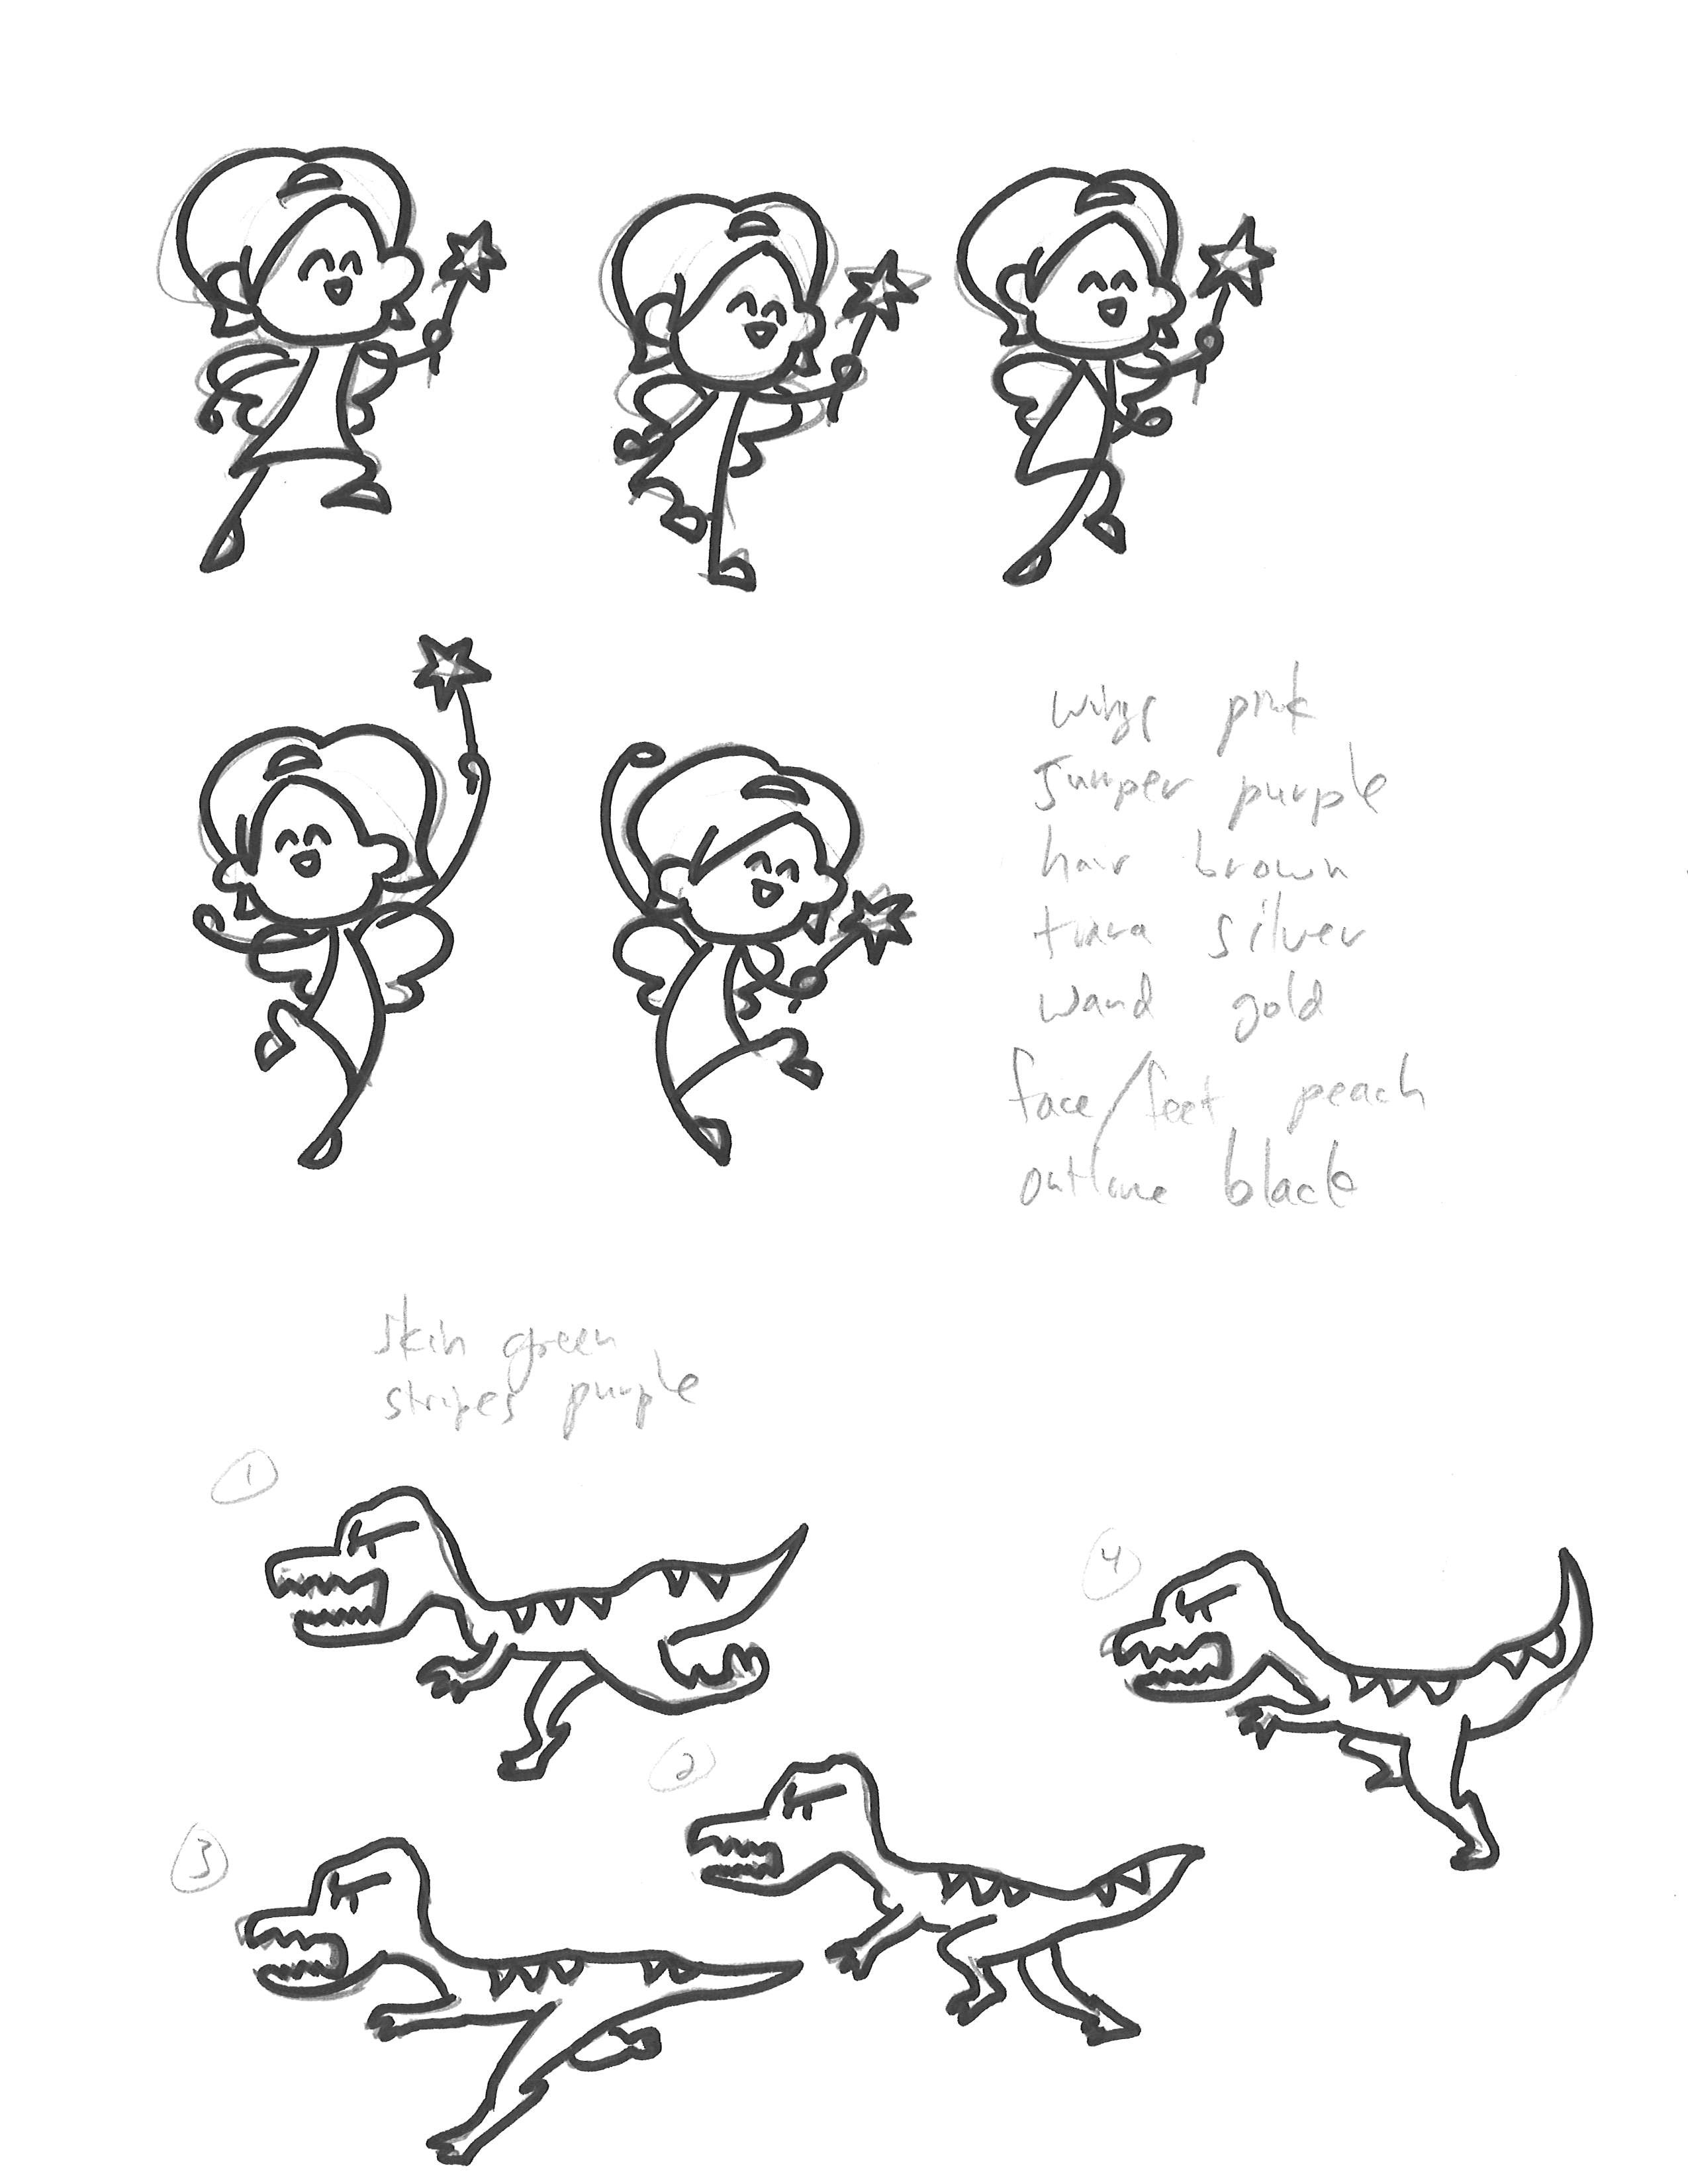 wings pink
jumper purple
hair brown
tiara silver
wand gold
face/feet peach
outline black
skin green
stripes purple
1
4
2
3